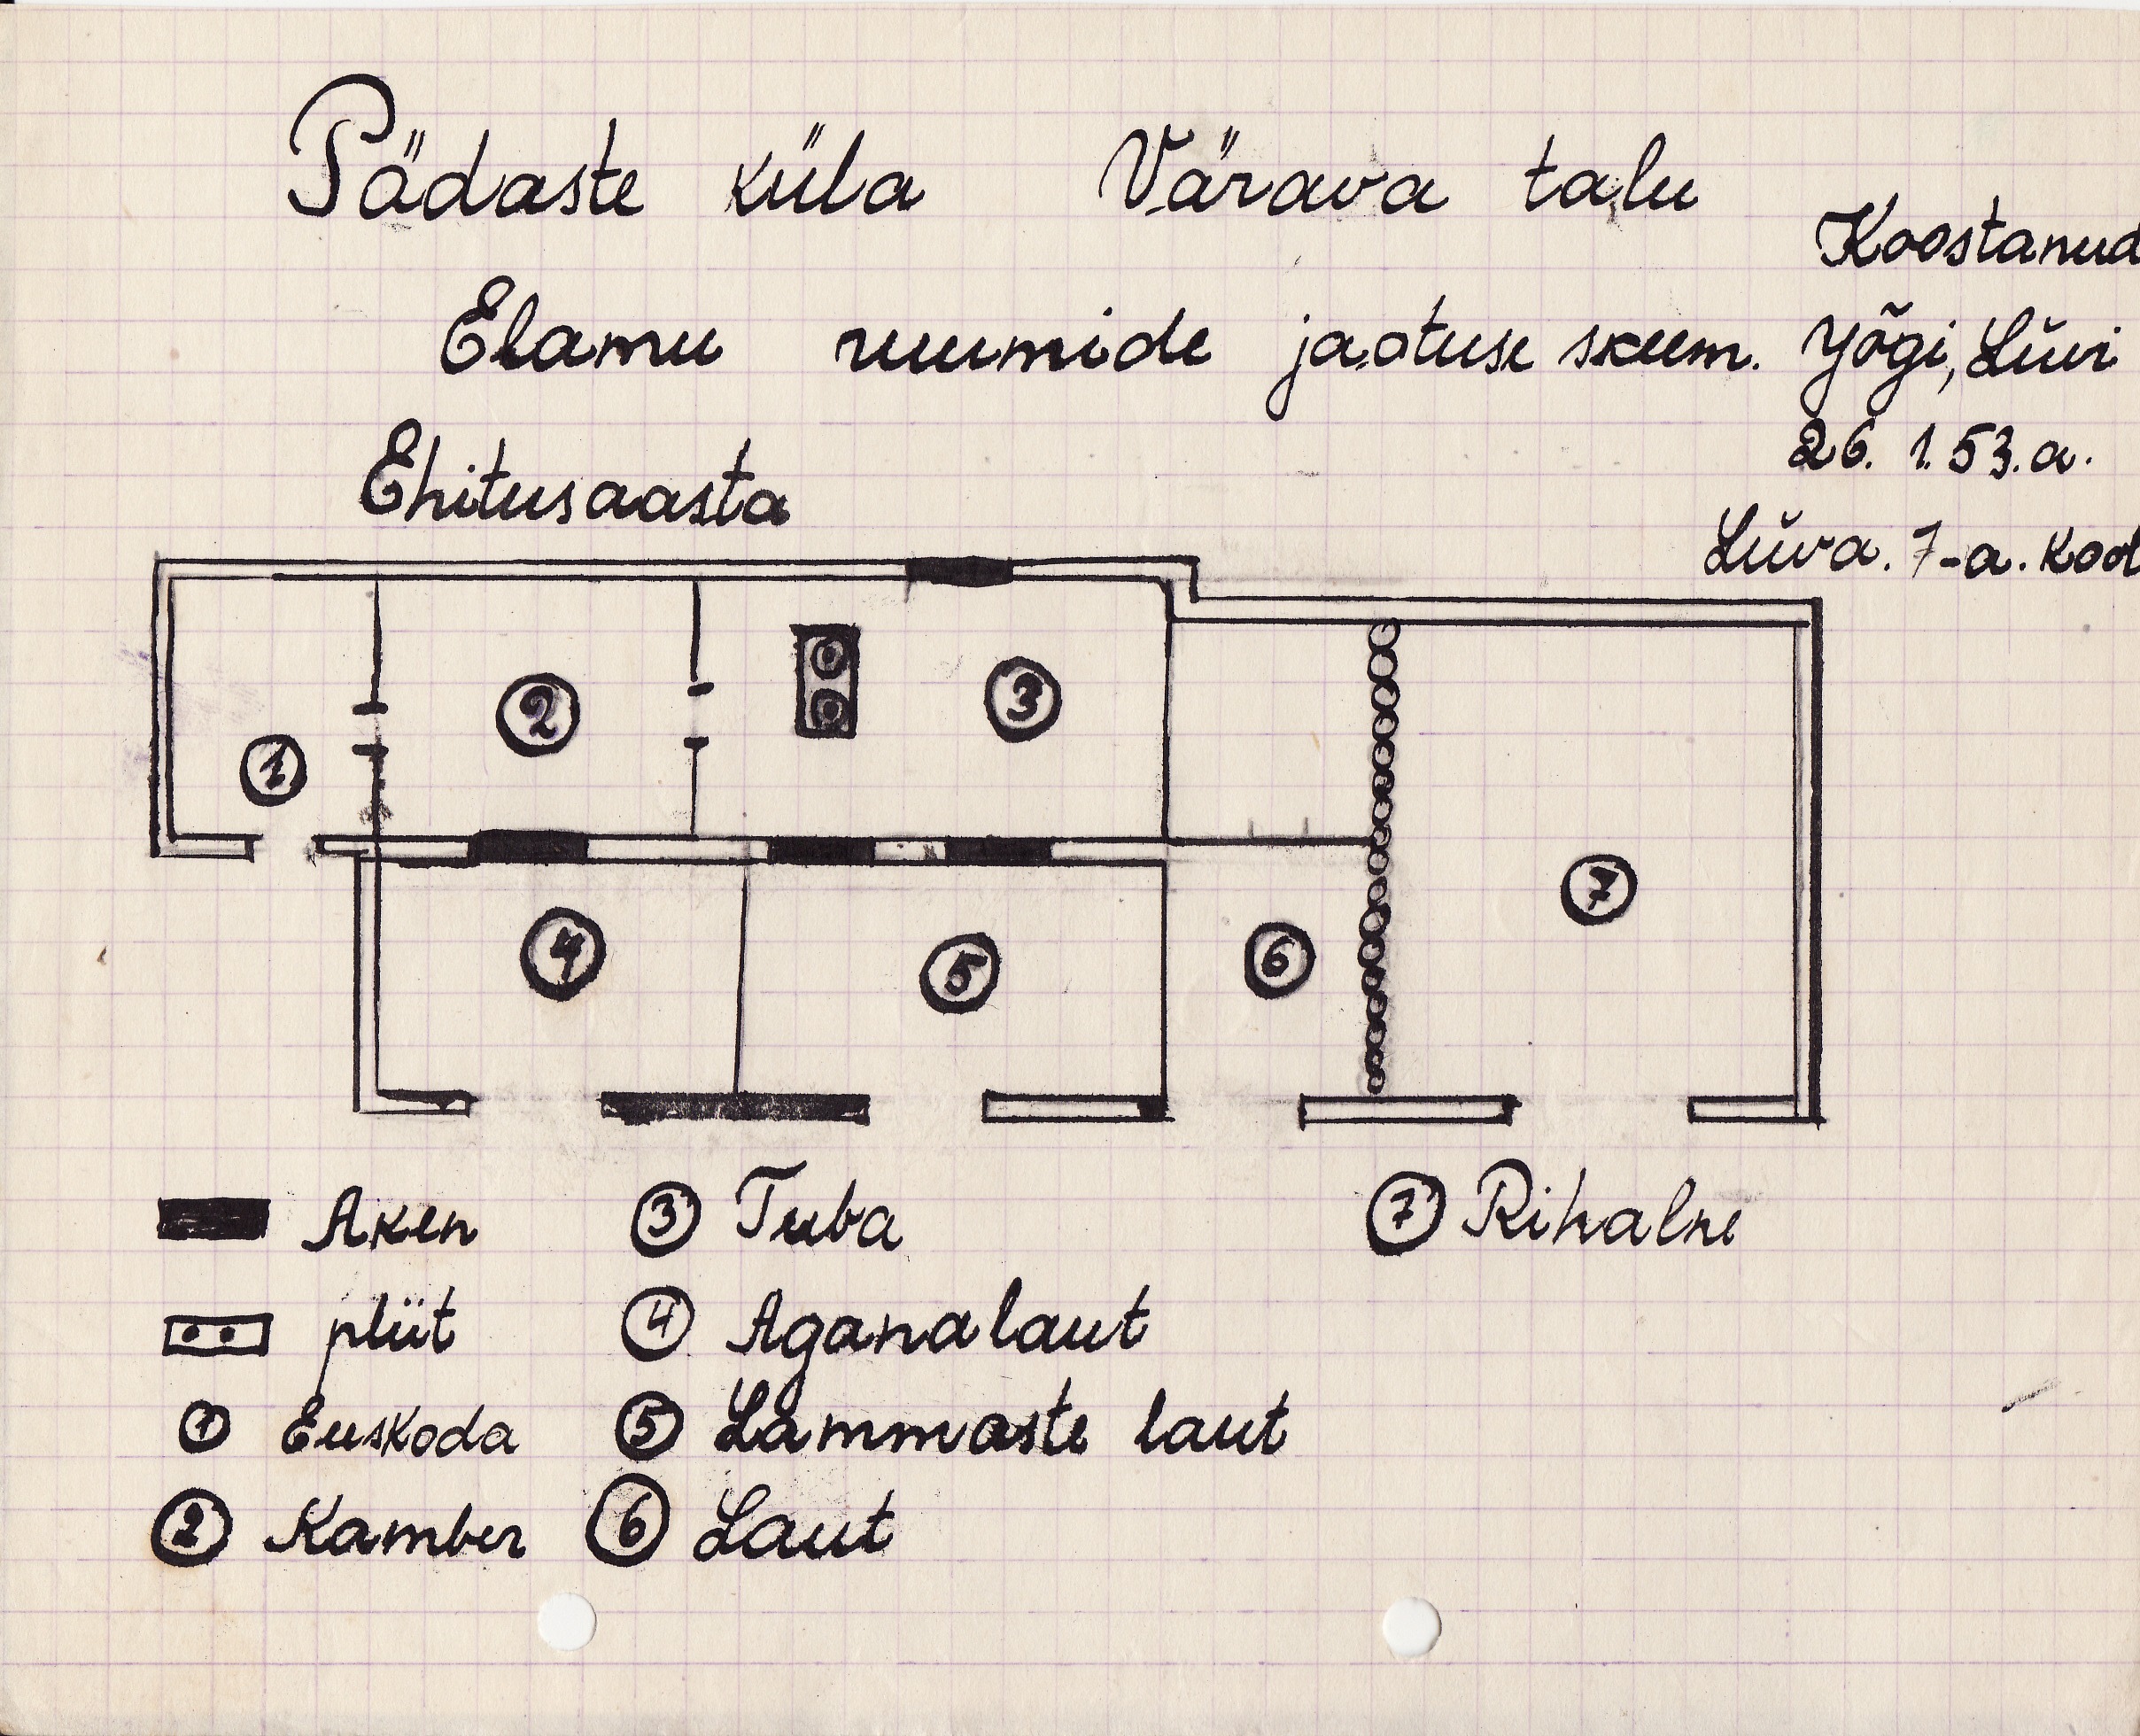 Pädaste küla Värava talu
Koostanud
Elamu ruumide jaotuse skeem. Jõgi, Liivi
26. 1. 53. a.
Ehitusaasta
Liiva. 7-a. kool
1
2
3
4
5
6
7
Aken
pliit
1 Euskoda
2 Kamber
3 Tuba
4 Aganalaut
5 Lammaste laut
6 Laut
7 Rihalne